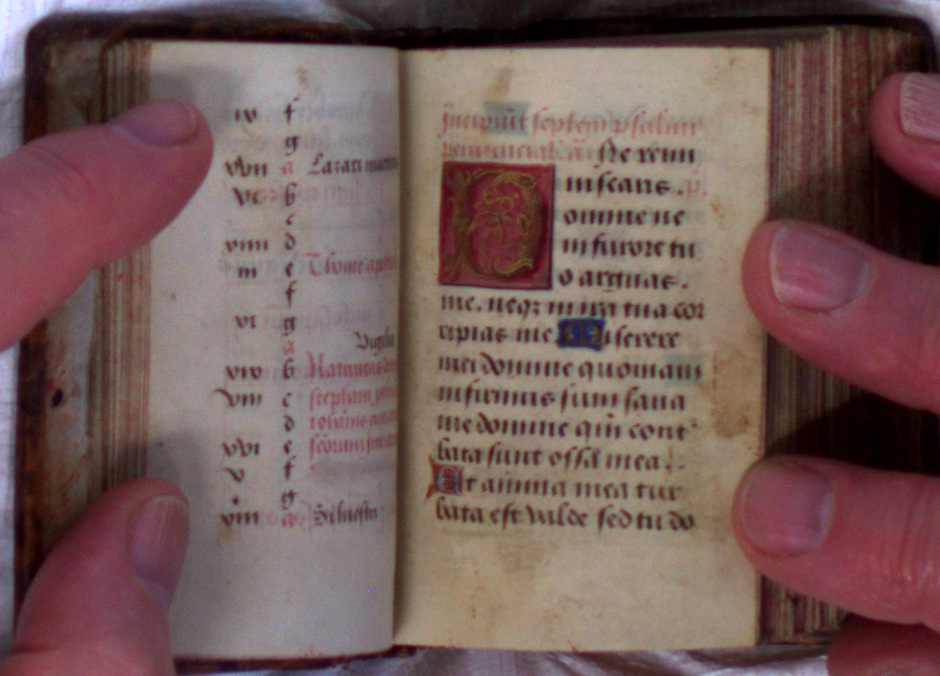 iv f
g
xvii a Lazari
vi b
c
xiiii d
iii e Thome
f
xi g
a Vigilia
xix b Natiuitas
viii c stephani
d iohannis
xvi e scõrum
v f
g
xiii a Siluestri
Incipiũt septem psalmi
penitenciales añ Ne remi
niscaris . p̃.
Domine ne
in furore tu
o arguas .
me. neqꝫ in ira tua cor
ripias me Miserere
mei domine quoniam
infirmus sum sana
me domine qm̃ cont᷒
bata sunt ossa mea .
Et anima mea tur
bata est valde sed tu do